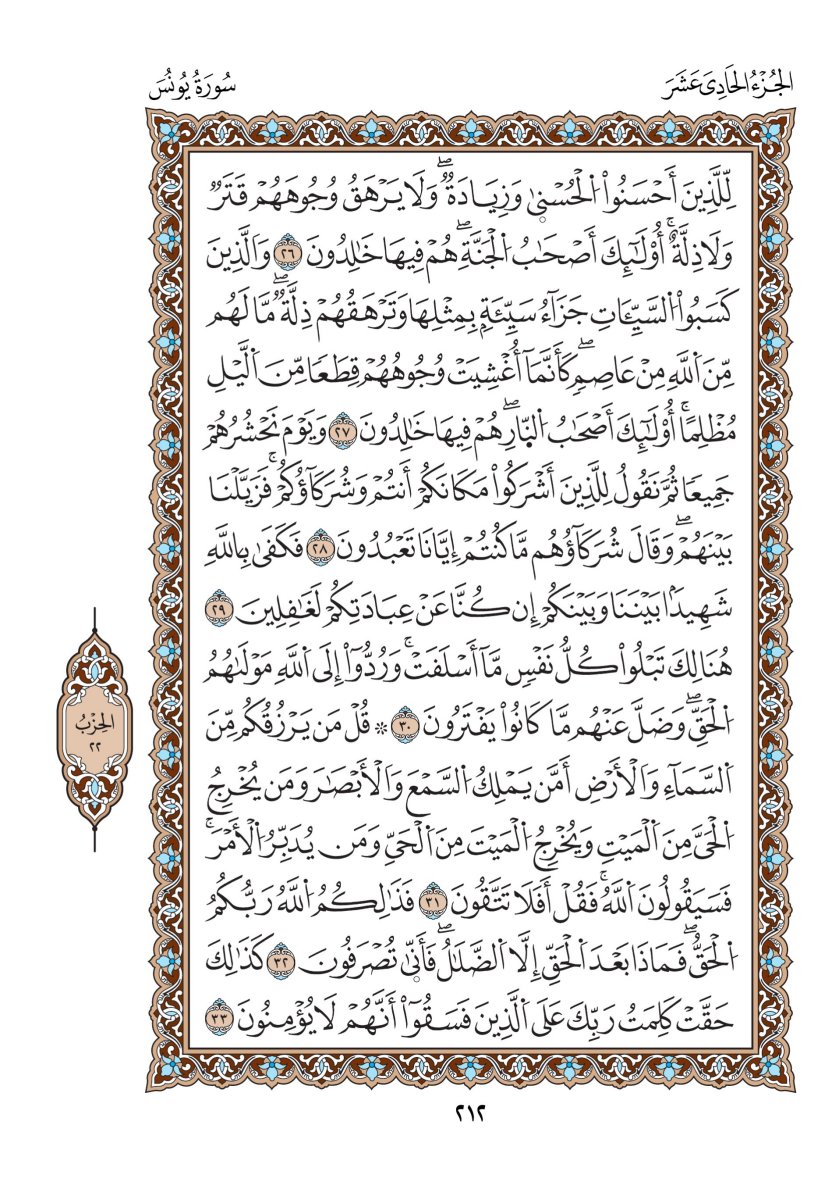 الجُزْءُ الحَادِىَ عَشَرَ
سُورَةُ يُونُسَ
لِّلَّذِينَ أَحْسَنُواْ اُ۬لْحُسْن۪ىٰ وَزِيَادَةٌۖ وَلَا يَرْهَقُ وُجُوهَهُمْ قَتَرٌ
وَلَا ذِلَّةٌۚ أُوْلَٰٓئِكَ أَصْحَٰبُ اُ۬لْجَنَّةِۖ هُمْ فِيهَا خَٰلِدُونَ ٢٦ وَاَلَّذِينَ
كَسَبُواْ اُ۬لسَّيِّـَٔاتِ جَزَآءُ سَيِّئَةِۢ بِمِثْلِهَا وَتَرْهَقُهُمْ ذِلَّةٌۖ مَّا لَهُم
مِّنَ اَ۬للَّهِ مِنْ عَاصِمٖۖ كَأَنَّمَآ أُغْشِيَتْ وُجُوهُهُمْ قِطَعٗا مِّنَ اَ۬لَّيْلِ
مُظْلِمًاۚ أُوْلَٰٓئِكَ أَصْحَٰبُ اُ۬لنّ۪ارِۖ هُمْ فِيهَا خَٰلِدُونَ ٢٧ وَيَوْمَ نَحْشُرُهُمْ
جَمِيعٗا ثُمَّ نَقُولُ لِلَّذِينَ أَشْرَكُواْ مَكَانَكُمْ أَنتُمْ وَشُرَكَآؤُكُمْۚ فَزَيَّلْنَا
بَيْنَهُمْۖ وَقَالَ شُرَكَآؤُهُم مَّا كُنتُمْ إِيَّانَا تَعْبُدُونَ ٢٨ فَكَفَىٰ بِاللَّهِ
شَهِيدَۢا بَيْنَنَا وَبَيْنَكُمْ إِن كُنَّا عَنْ عِبَادَتِكُمْ لَغَٰفِلِينَ ٢٩
هُنَالِكَ تَبْلُواْ كُلُّ نَفْسٖ مَّآ أَسْلَفَتْۚ وَرُدُّوٓاْ إِلَى اَ۬للَّهِ مَوْلَىٰهُمُ
اُ۬لْحَقِّۖ وَضَلَّ عَنْهُم مَّا كَانُواْ يَفْتَرُونَ ٣٠ ۞ قُلْ مَن يَرْزُقُكُم مِّنَ
اَ۬لسَّمَآءِ وَاَلْأَرْضِ أَمَّن يَمْلِكُ اُ۬لسَّمْعَ وَاَلْأَبْصَٰرَ وَمَن يُخْرِجُ
اُ۬لْحَيَّ مِنَ اَ۬لْمَيْتِ وَيُخْرِجُ اُ۬لْمَيْتَ مِنَ اَ۬لْحَيِّ وَمَن يُدَبِّرُ اُ۬لْأَمْرَۚ
فَسَيَقُولُونَ اَ۬للَّهُۚ فَقُلْ أَفَلَا تَتَّقُونَ ٣١ فَذَٰلِكُمُ اُ۬للَّهُ رَبُّكُمُ
اُ۬لْحَقُّۖ فَمَاذَا بَعْدَ اَ۬لْحَقِّ إِلَّا اَ۬لضَّلَٰلُۖ فَأَنّ۪ىٰ تُصْرَفُونَ ٣٢ كَذَٰلِكَ
حَقَّتْ كَلِمَتُ رَبِّكَ عَلَى اَ۬لَّذِينَ فَسَقُوٓاْ أَنَّهُمْ لَا يُؤْمِنُونَ ٣٣
الحِزْبُ
٢٢
٢١٢